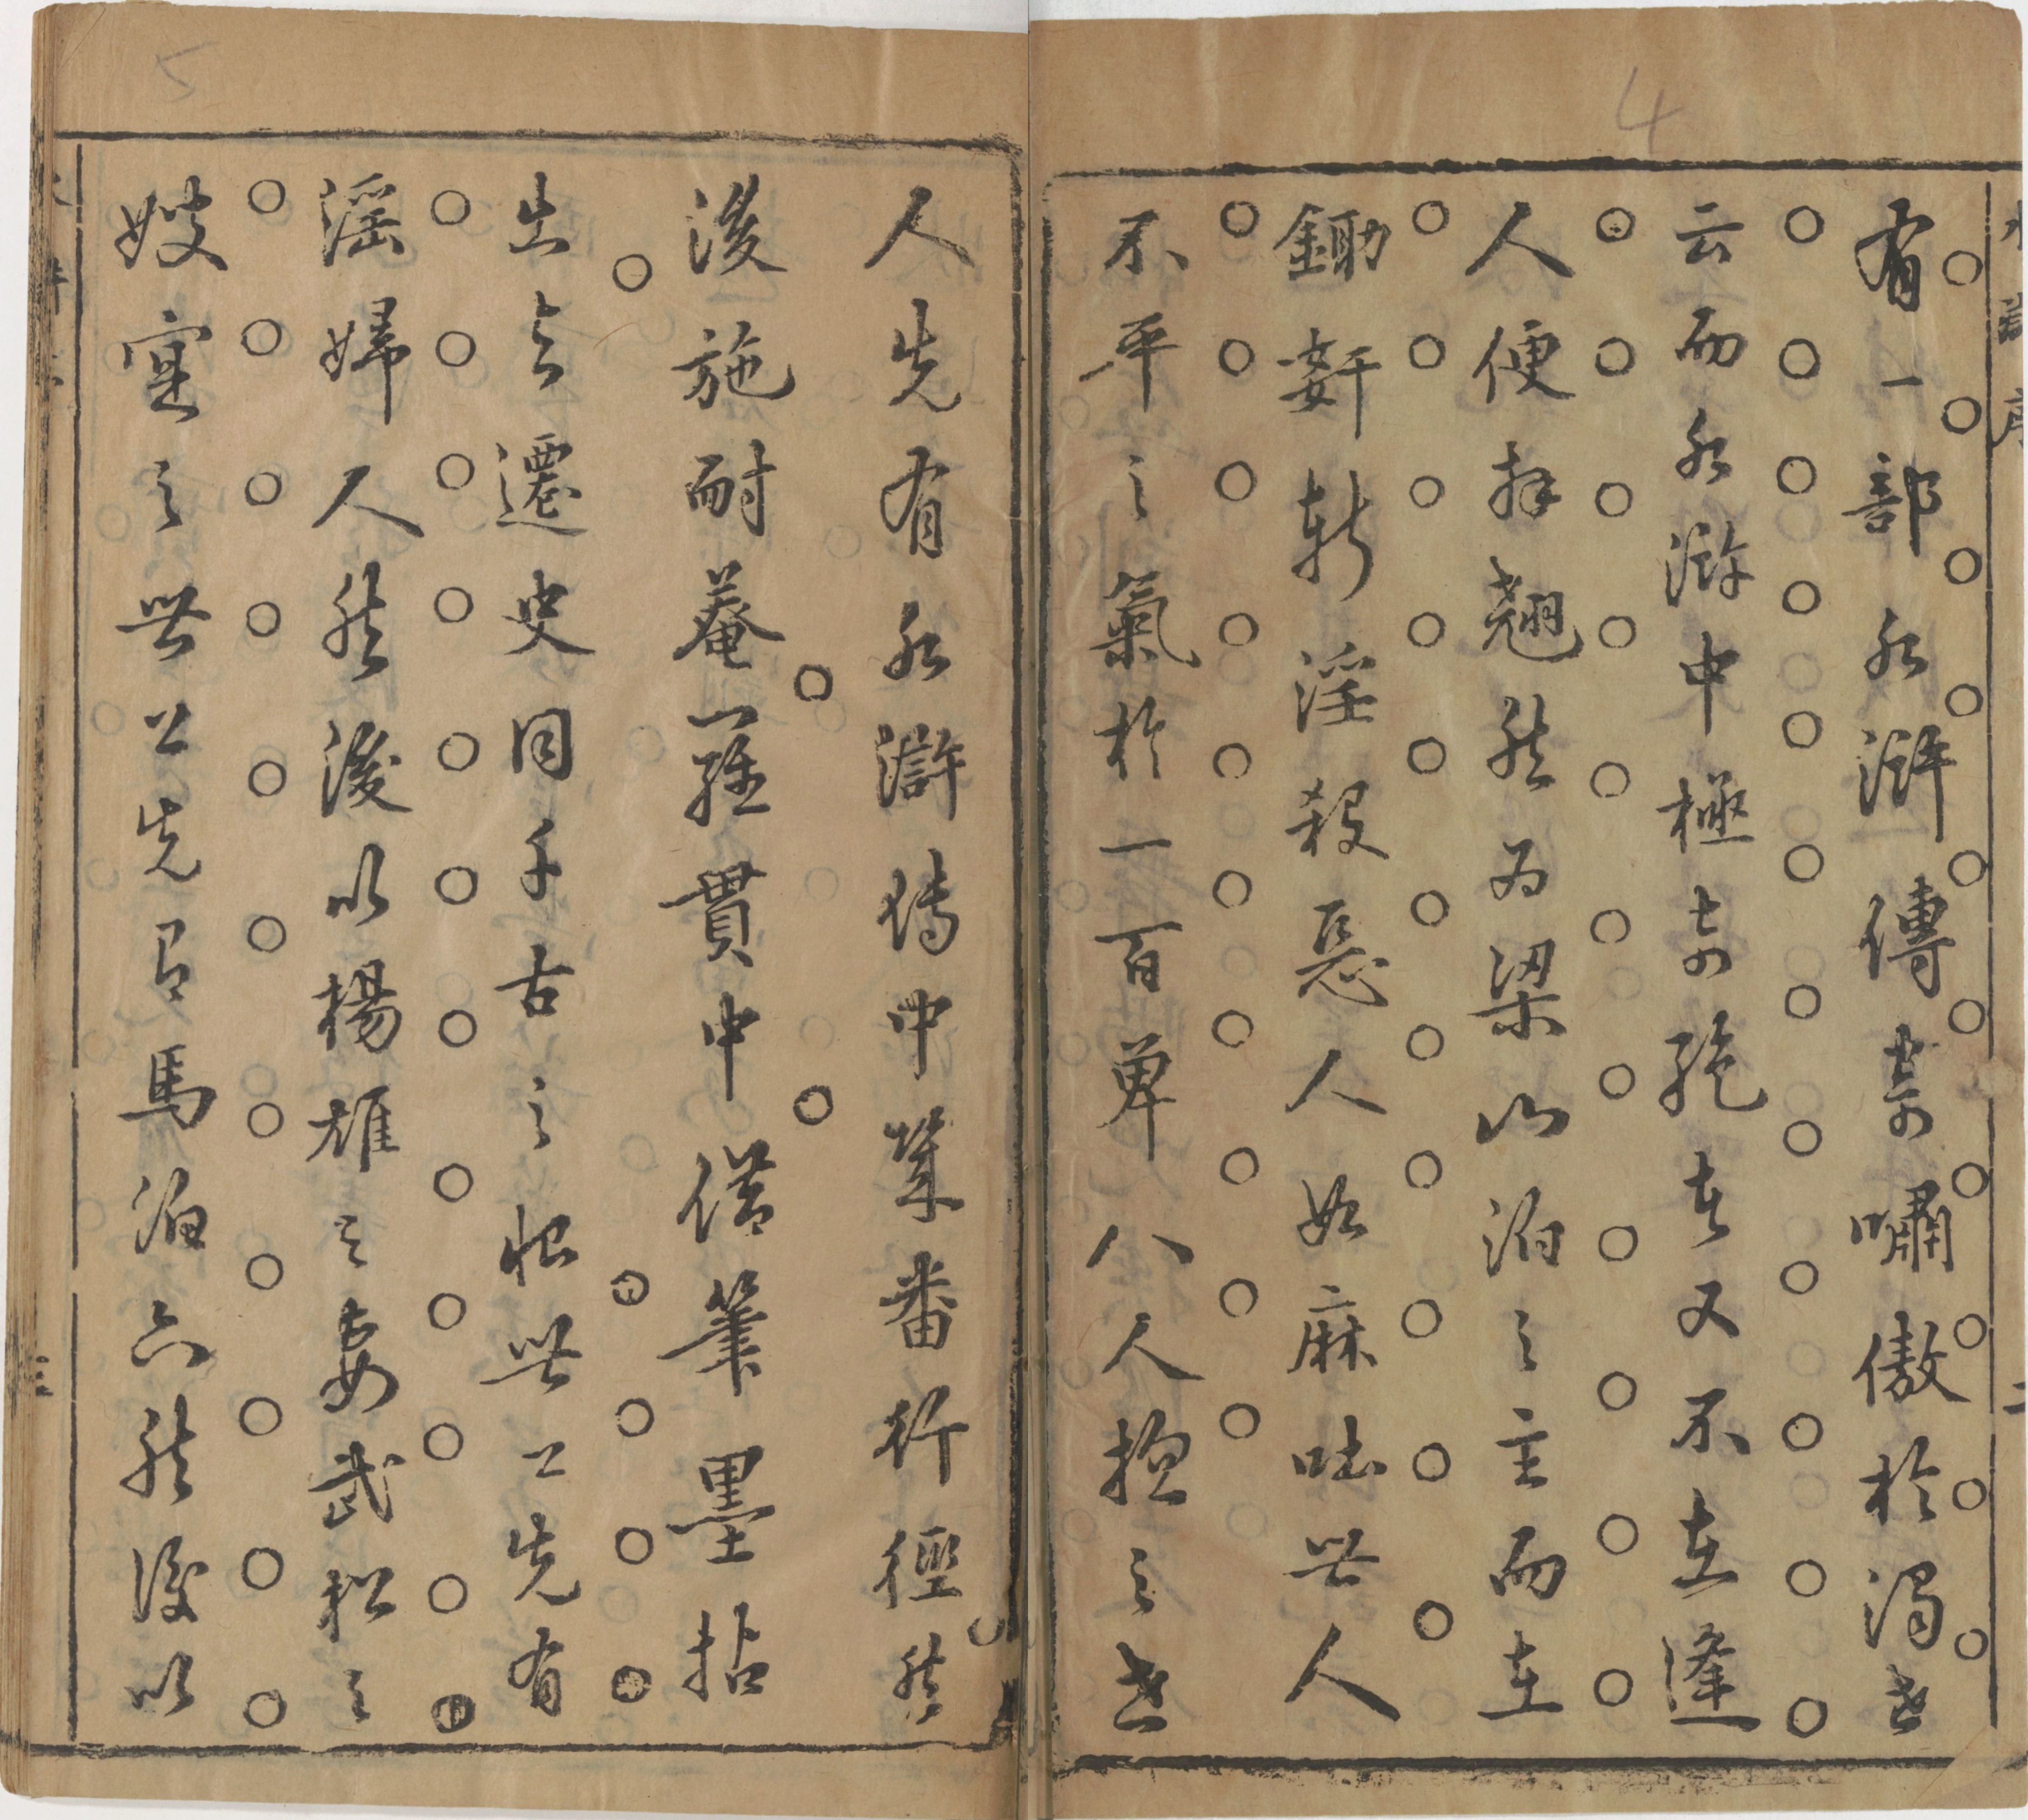 水滸序
二
有一部水滸傳寄嘯傲於濁世
云而水滸中極奇絕者又不在逢
人便拜翹然為梁山泊之主而在
鋤姧斬淫殺惡人如麻吐世人
不平之氣於一百單八人揔之世
人先有水滸傳中某番行徑然
後施耐菴羅貫中借筆墨拈
出與遷史同千古之恨世上先有
淫婦人然後以楊雄之妻武松之
嫂寔之世上先有馬泊六然後以
三
4
5